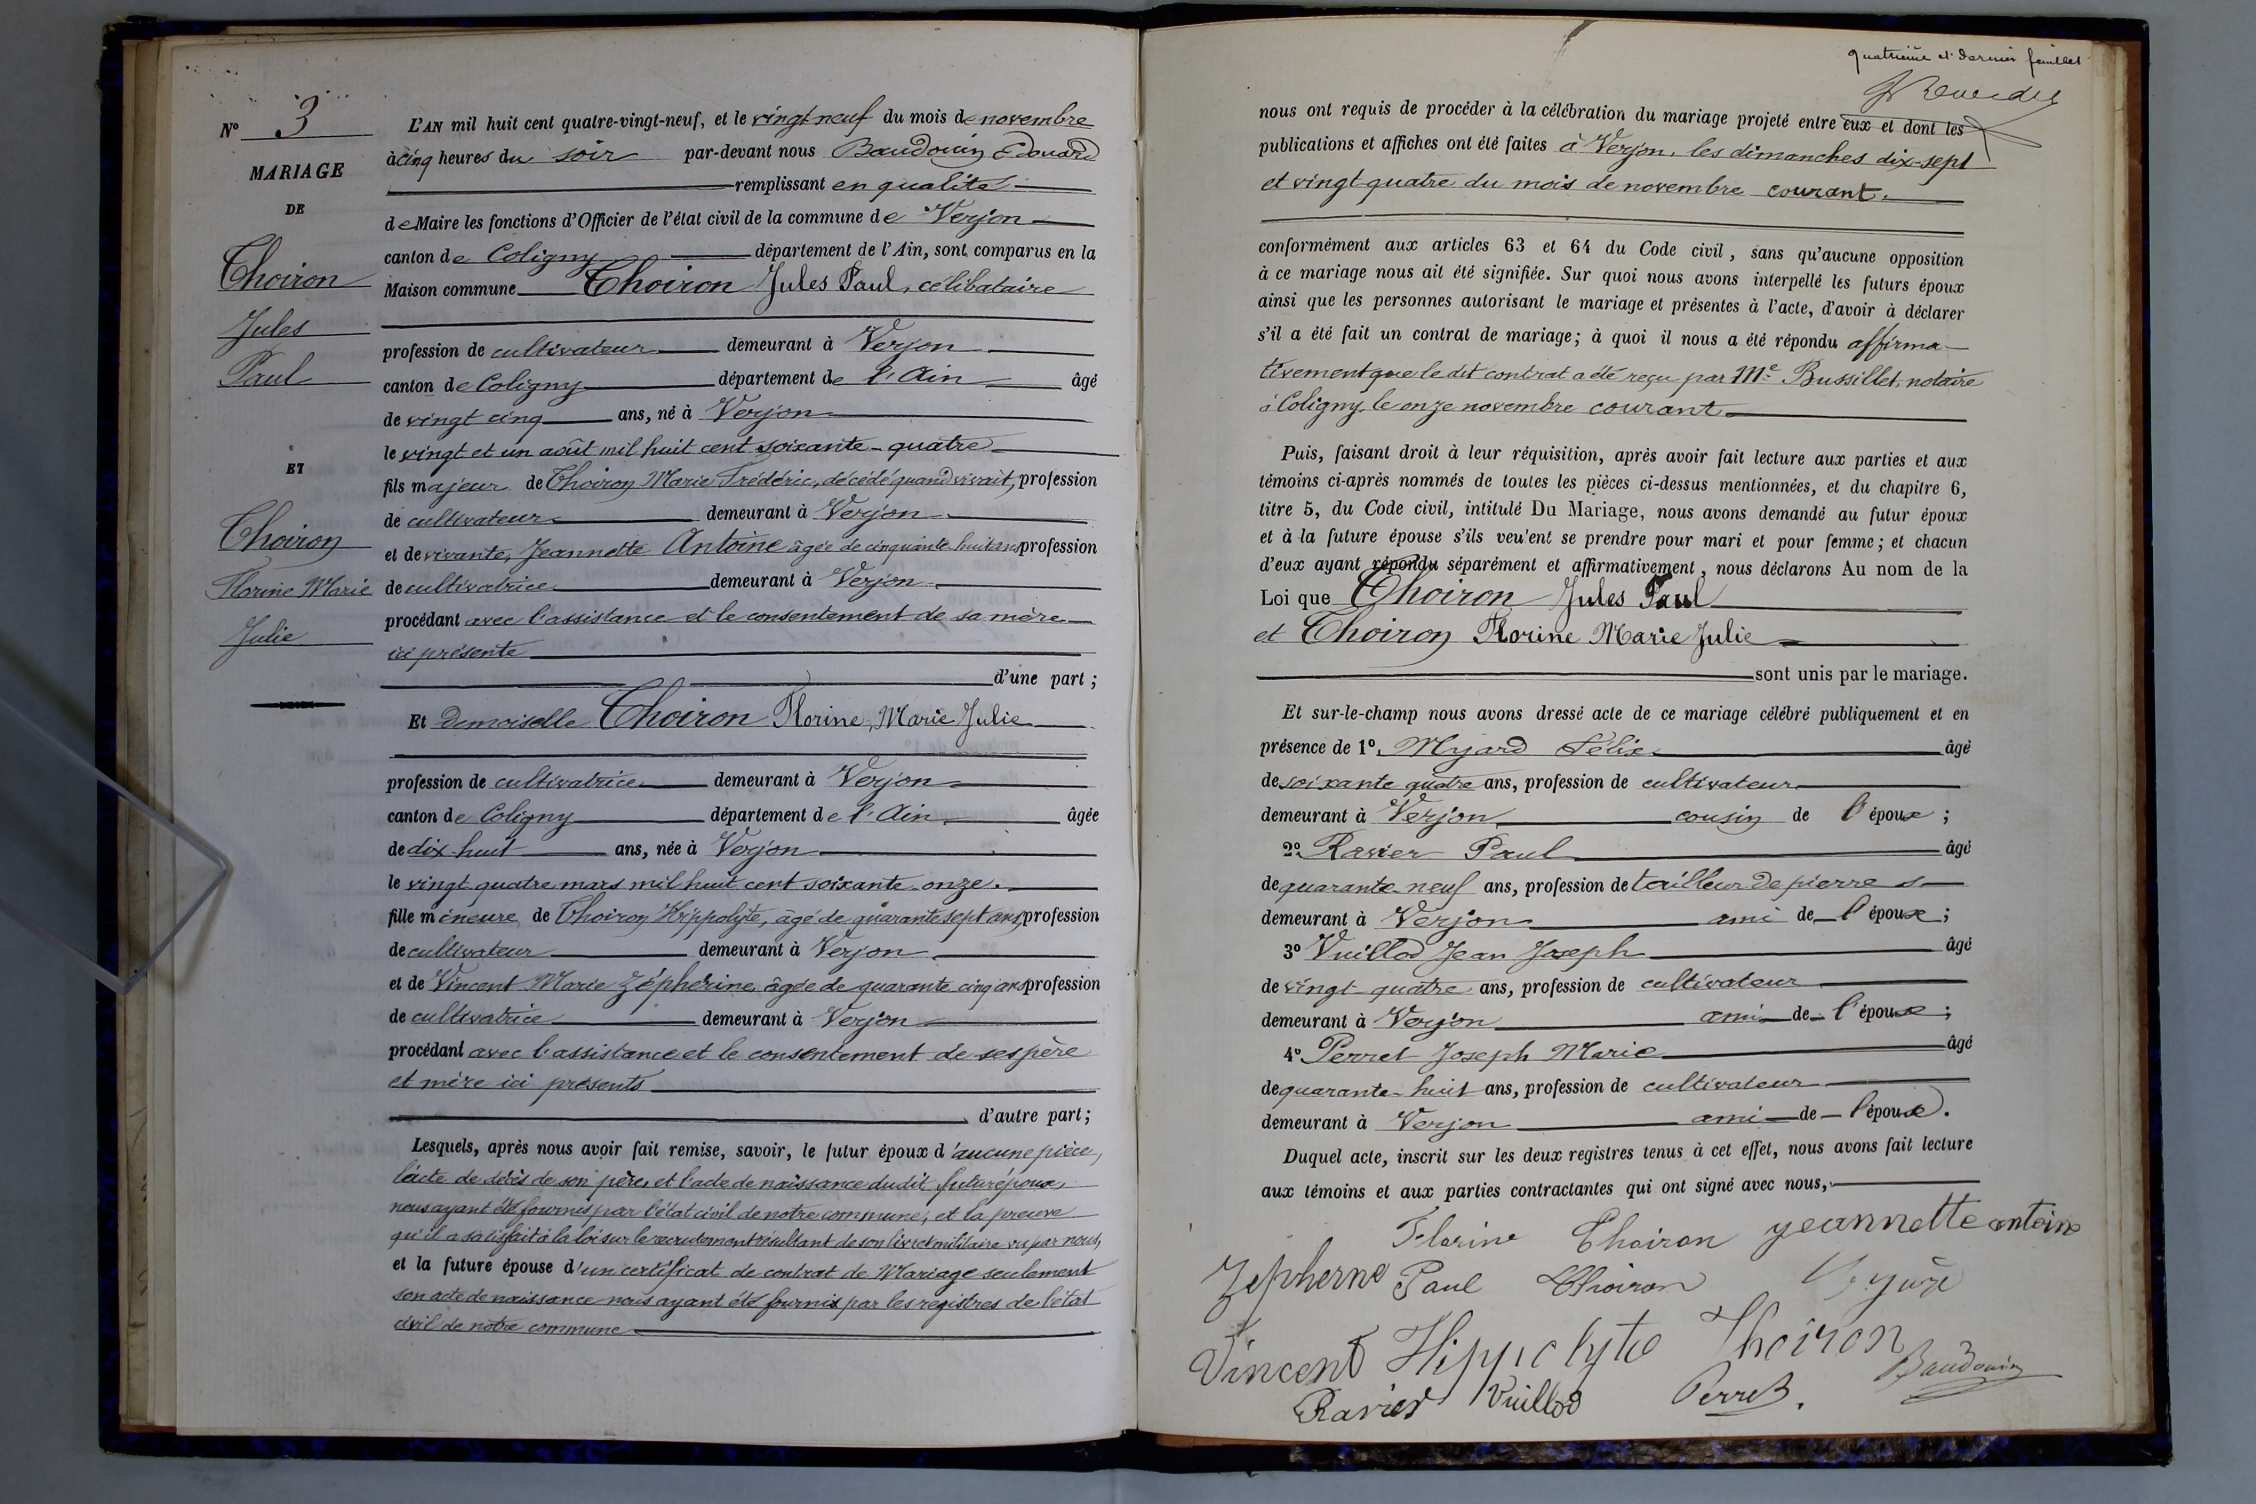 N° 3
MARIAGE
DE
Thoiron
Jules
Paul
ET
Thoiron
Florine Marie
Julie
L'AN mil huit cent quatre-vingt-neuf, et le vingt neuf du mois de novembre
à cinq heures du soir par-devant nous Baudouin Edouard
remplissant en qualité
de Maire les fonctions d'Officier de l'état civil de la commune de Verjon
canton de Coligny département de l'Ain, sont comparus en la
Maison commune Thoiron Jules Paul, célibataire
profession de cultivateur demeurant à Verjon
canton de Coligny département de l'Ain âgé
de vingt cinq ans, né à Verjon
le vingt et un août mil huit cent soixante-quatre
fils majeur de Thoiron Marie Frédéric, décédé quand vivait, profession
de cultivateur demeurant à Verjon
et de vivante, Jeannette Antoine âgée de cinquante huit ans profession
de cultivatrice demeurant à Verjon
procédant avec l'assistance et le consentement de sa mère
ici présente
d'une part ;
Et demoiselle Thoiron Florine, Marie Julie
profession de cultivatrice demeurant à Verjon
canton de Coligny département de l'Ain âgée
de dix huit ans, née à Verjon
le vingt quatre mars mil huit cent soixante-onze.
fille mineure de Thoiron Hippolyte, âgé de quarante sept ans, profession
de cultivateur demeurant à Verjon
et de Vincent Marie Zépherine, âgée de quarante cinq ans profession
de cultivatrice demeurant à Verjon
procédant avec l'assistance et le consentement de ses père
et mère ici présents
d'autre part ;
Lesquels, après nous avoir fait remise, savoir, le futur époux d'aucune pièce,
l'acte de décès de son père, et l'acte de naissance dudit futur époux,
nous ayant été fournis par l'état civil de notre commune, et la preuve
qu'il a satisfait à la loi sur le recrutement résultant de son livret militaire vu par nous,
et la future épouse d'un certificat de contrat de Mariage seulement
son acte de naissance nous ayant été fournis par les registres de l'état
civil de notre commune
quatrième et dernier feuillet
nous ont requis de procéder à la célébration du mariage projeté entre eux et dont les
publications et affiches ont été faites à Verjon, les dimanches dix-sept
et vingt-quatre du mois de novembre courant.
conformément aux articles 63 et 64 du Code civil, sans qu'aucune opposition
à ce mariage nous ait été signifiée. Sur quoi nous avons interpellé les futurs époux
ainsi que les personnes autorisant le mariage et présentes à l'acte, d'avoir à déclarer
s'il a été fait un contrat de mariage ; à quoi il nous a été répondu affirma-
tivement que le dit contrat a été reçu par Me Bussillet, notaire
à Coligny, le onze novembre courant
Puis, faisant droit à leur réquisition, après avoir fait lecture aux parties et aux
témoins ci-après nommés de toutes les pièces ci-dessus mentionnées, et du chapitre 6,
titre 5, du Code civil, intitulé Du Mariage, nous avons demandé au futur époux
et à la future épouse s'ils veu'ent se prendre pour mari et pour femme ; et chacun
d'eux ayant répondu séparément et affirmativement, nous déclarons Au nom de la
Loi que Thoiron Jules Paul
et Thoiron Florine Marie Julie
sont unis par le mariage.
Et sur-le-champ nous avons dressé acte de ce mariage célébré publiquement et en
présence de 1°. Myard Félix âgé
de soixante quatre ans, profession de cultivateur
demeurant à Verjon cousin de l'épouse ;
2° Ravier Paul âgé
de quarante-neuf ans, profession de tailleur de pierre s
demeurant à Verjon ami de l'épouse ;
3° Vuillod Jean Joseph âgé
de vingt-quatre ans, profession de cultivateur
demeurant à Verjon ami de l'épouse ;
4° Perret Joseph Marie âgé
de quarante-huit ans, profession de cultivateur
demeurant à Verjon ami de l'épouse.
Duquel acte, inscrit sur les deux registres tenus à cet effet, nous avons fait lecture
aux témoins et aux parties contractantes qui ont signé avec nous,
Florine Thoiron jeannette antoine
Zepherne Paul Thoiron
Vincent Hippolyte Thoiron
Ravier Vuillod Perret. Baudouin